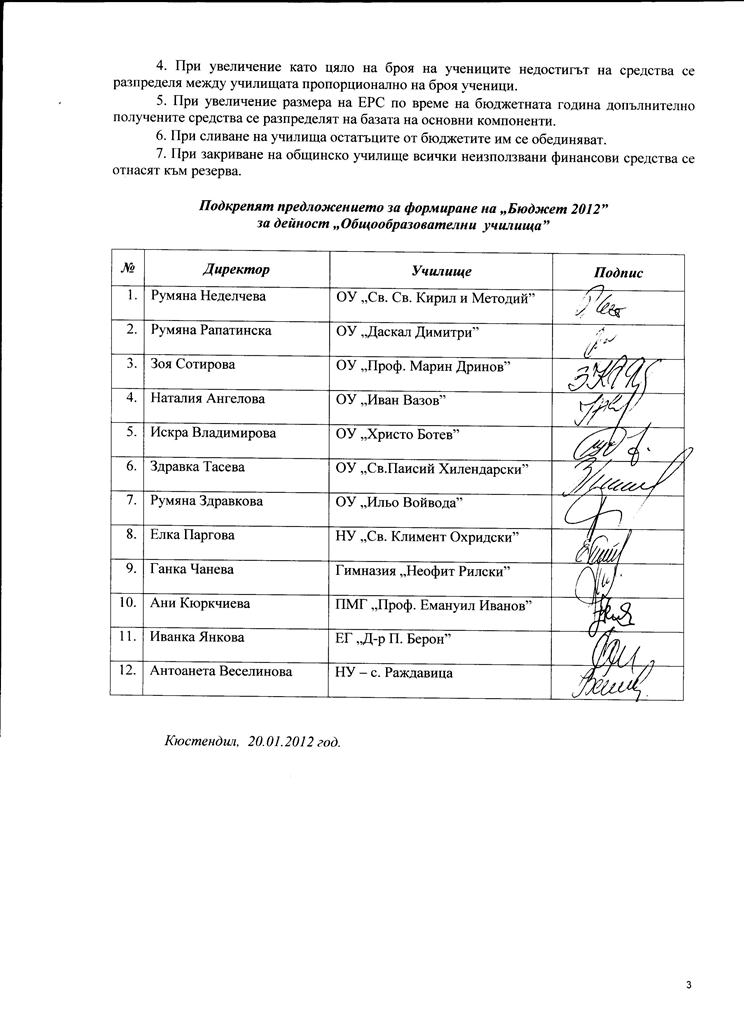 4. При увеличение като цяло на броя на учениците недостигът на средства се
разпределя между училищата пропорционално на броя ученици.
5. При увеличение размера на ЕРС по време на бюджетната година допълнително
получените средства се разпределят на базата на основни компоненти.
6. При сливане на училища остатъците от бюджетите им се обединяват.
7. При закриване на общинско училище всички неизползвани финансови средства се
отнасят към резерва.
Подкрепят предложението за формиране на „Бюджет 2012”
за дейност „Общообразователни училища”
№ Директор Училище Подпис
1. Румяна Неделчева ОУ „Св. Св. Кирил и Методий”
2. Румяна Рапатинска ОУ „Даскал Димитри”
3. Зоя Сотирова ОУ „Проф. Марин Дринов”
4. Наталия Ангелова ОУ „Иван Вазов”
5. Искра Владимирова ОУ „Христо Ботев”
6. Здравка Тасева ОУ „Св.Паисий Хилендарски”
7. Румяна Здравкова ОУ „Ильо Войвода”
8. Елка Паргова НУ „Св. Климент Охридски”
9. Ганка Чанева Гимназия „Неофит Рилски”
10. Ани Кюркчиева ПМГ „Проф. Емануил Иванов”
11. Иванка Янкова ЕГ „Д-р П. Берон”
12. Антоанета Веселинова НУ – с. Раждавица
Кюстендил, 20.01.2012 год.
3